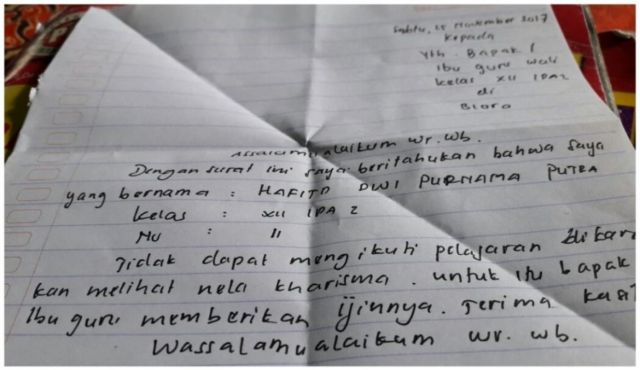 Sabtu, 25 November 2017
Kepada
Yth. Bapak /
Ibu guru wali
kelas XII IPA2
di
Blora
Assalamualaikum wr. wb.
Dengan surat ini saya beritahukan bahwa saya
yang bernama : HAFITD DWI PURNAMA PUTRA
Kelas : XII IPA 2
No : 11
Tidak dapat mengikuti pelajaran dikar
kan melihat nela kharisma. untuk itu bapak
Ibu guru memberikan ijinnya. Terima kasi
Wassalamualaikum wr. wb.